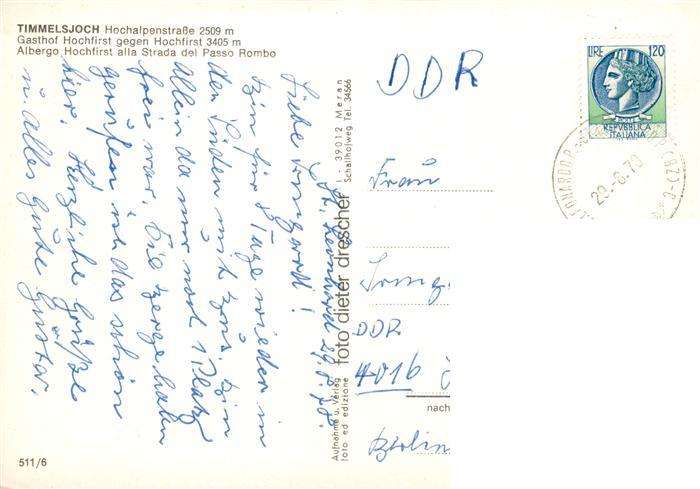 TIMMELSJOCH Hochalpenstraße 2509 m
Gasthof Hochfirst gegen Hochfirst 3405 m
Albergo Hochfirst alla Strada del Passo Rombo
St. Leonhard 29.8.78.
Liebe Irmgard!
bin für 8 Tage wieder im
den Süden mit Bus. bin
allein da nur noch 1 Platz
frei war. Die Berge haben
gerufen ist das schön
hier. Herzliche Grüße
u. Alles Gute Gustav.
511/6
Aufnahme u. Verlag
foto ed edizione
foto dieter drescher
I - 39012 Meran
Schallhofweg Tel. 34566
LIRE 120
POSTE
REPVBBLICA
ITALIANA
LEONARDO P.
29.-8.70
(BZ)
DDR
Frau
Irmg.
DDR
4016
nach
Berlin